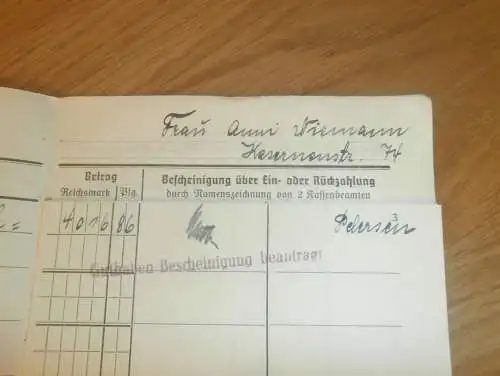 Frau Anni Niemann
Kasernenstr. 74
Betrag
Reichsmark Pfg.
Bescheinigung über Ein- oder Rückzahlung
durch Namenszeichnung von 2 Kassenbeamten
4016 86 Petersen
Guthaben-Bescheinigung beantragt